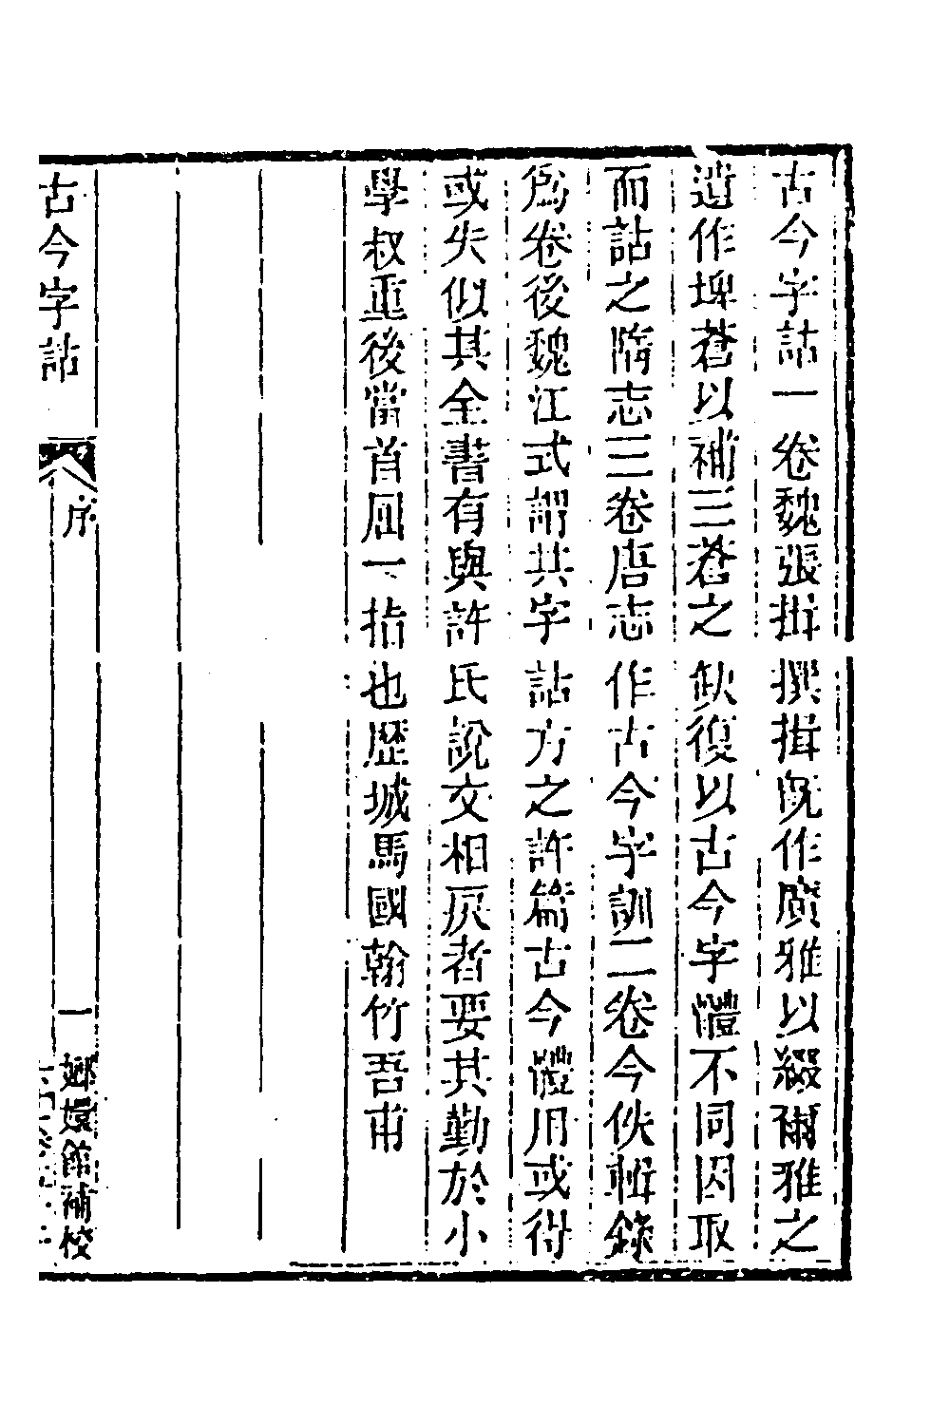 古今字詁一卷魏張揖撰揖既作廣雅以綴爾雅之
遺作埤蒼以補三蒼之缺復以古今字體不同因取
而詁之隋志三卷唐志作古今字訓二卷今佚輯錄
爲卷後魏江式謂其字詁方之許篇古今體用或得
或失似其全書有與許氏說文相戾者要其勤於小
學叔重後當首屈一指也歷城馬國翰竹吾甫
古今字詁
序
一
嫏嬛館補校